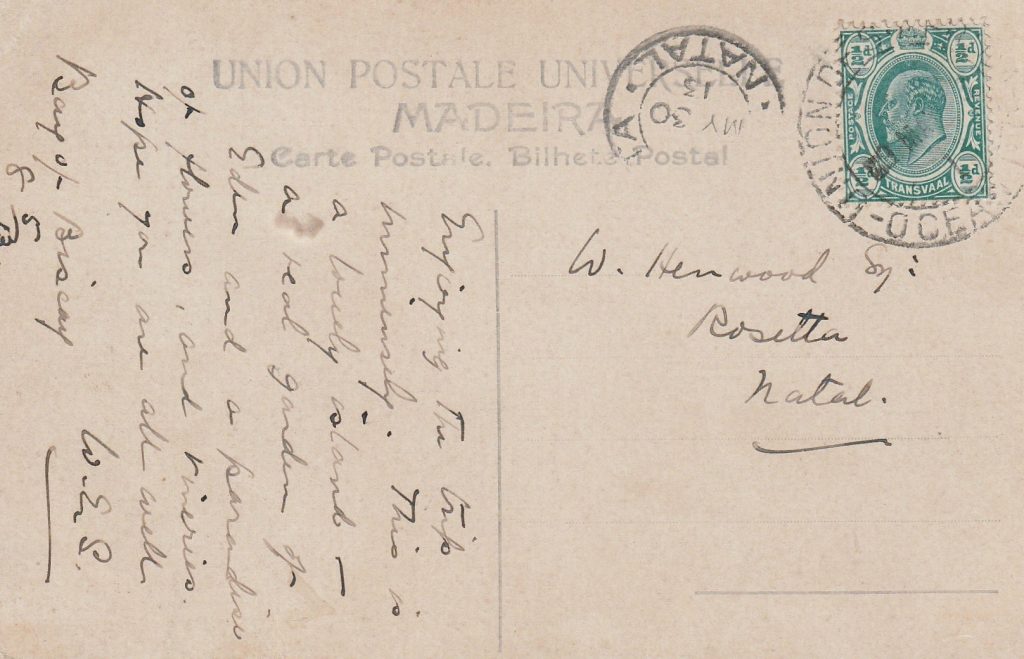 UNION POSTALE UNIVERSELLE
MADEIRA
Carte Postale. Bilhete Postal
NATAL
MY 30
13
A
½d ½d
POSTAGE REVENUE
½d ½d
TRANSVAAL
UNION
OCEAN
W. Henwood Esq:
Rosetta
Natal.
Enjoying the trip
immensely. This is
a lovely island —
a real garden of
Eden and a paradise
of flowers, and vineries.
Hope you are all well
W.E.S.
Bay of Biscay
8/5/13